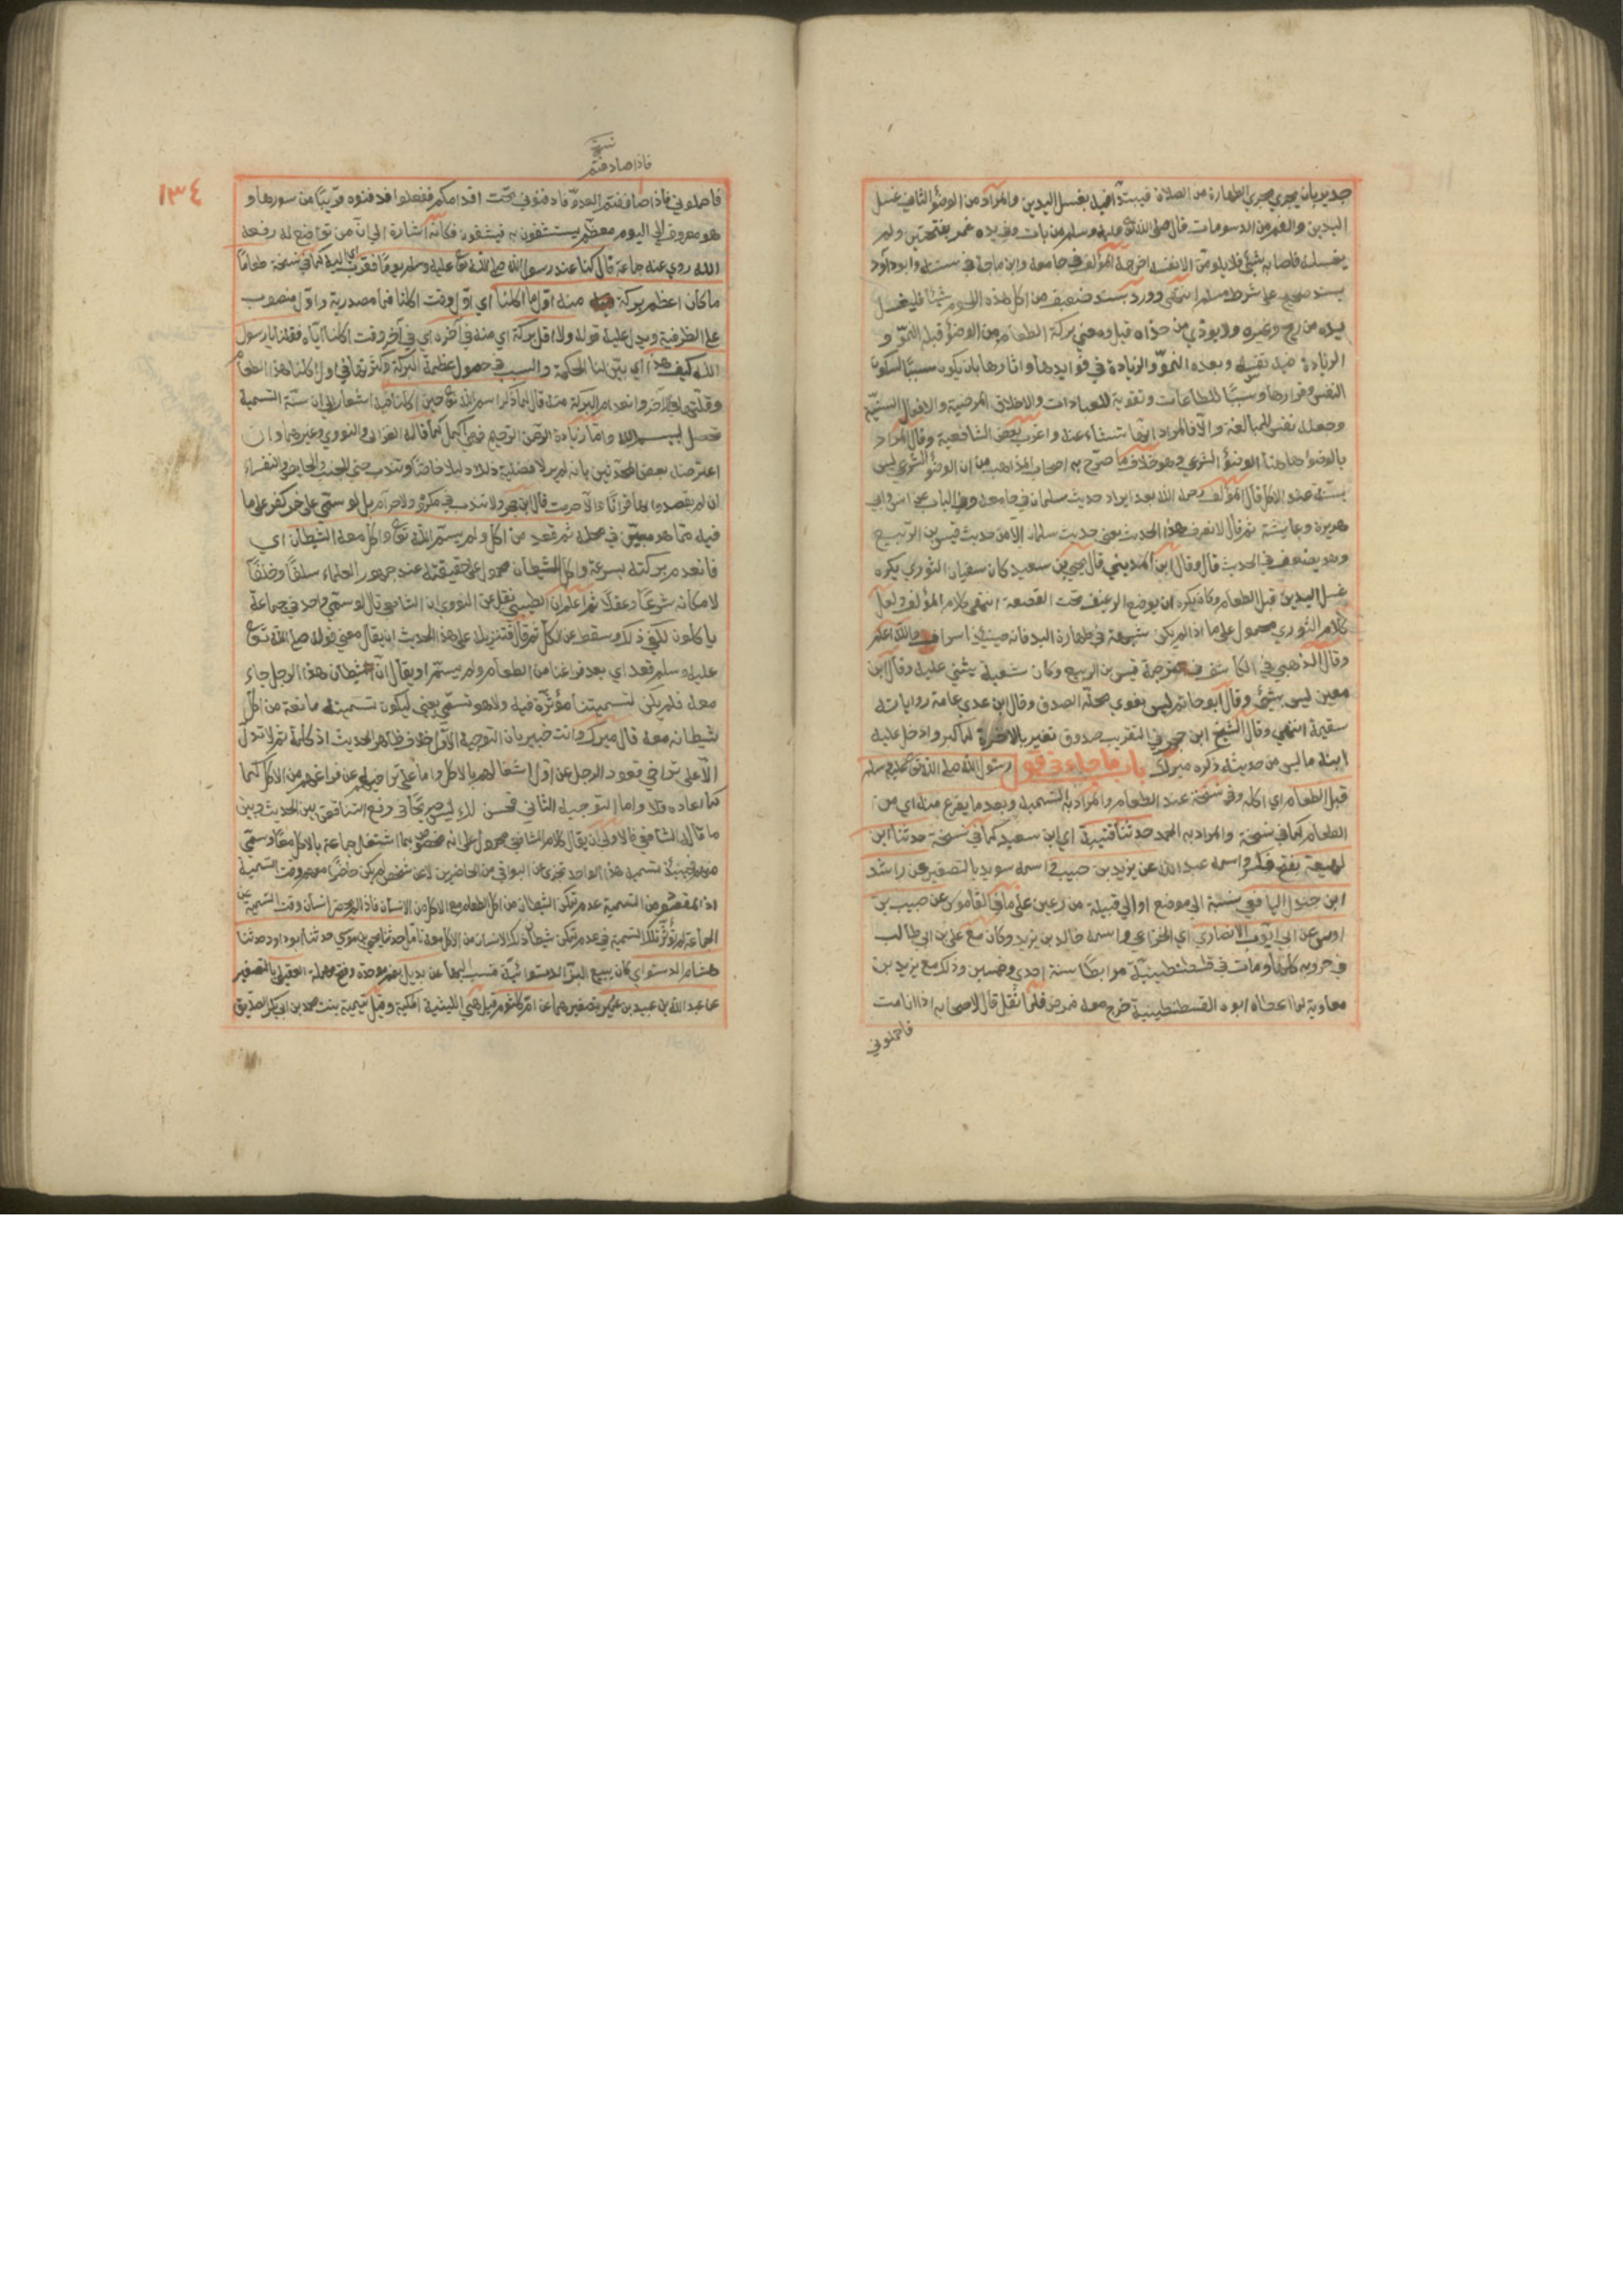 جدير بان يجري مجرى الطهارة من الصلاة فيبتدأ فيه بغسل اليدين والمراد من الوضؤ الثاني غسل
اليدين والفم من الدسومات قال صلى الله تع عليه وسلم من بات وفي يده غمر بفتحتين ولم
يغسله فاصابه شيئ فلا يلومن الا نفسه اخرجه المؤلف في جامعه وابن ماجة في سننه وابوداود
بسند صحيح على شرط مسلم انتهى وورد بسند ضعيف من اكل هذه اللحوم شيئا فليغسل
يده من ريح وغمره ولا يوذي من حذاه قيل ومعنى بركة الطعام من الوضوء قبله النمو و
الزيادة فيه نفسه وبعده النمو والزيادة في فوايدها واثارها بان يكون سببا لسكون
النفس وقرارها وسببا للطاعات وتقوية للعبادات والاخلاق المرضية والافعال السنية
وجعله نفس للمبالغة والا فالمراد انها تنشاء عنه واغرب بعض الشافعية وقال المراد
بالوضوء هاهنا الوضؤ الشرعي وهو خلاف ما صرح به اصحاب المذاهب من ان الوضؤ الشرعي ليس
بسنة عند الاكل قال المؤلف رحمه الله بعد ايراد حديث سلمان في جامعه وفي الباب عن انس وابي
هريرة وعايشة ثم قال لا نعرف هذا الحديث يعني حديث سلمان الا من حديث قيس بن الربيع
وهو يضعف في الحديث قال وقال ابن المديني قال يحيى بن سعيد كان سفيان الثوري يكره
غسل اليدين قبل الطعام وكان يكره ان يوضع الرغيف تحت القصعة انتهى كلام المؤلف ولعل
كلام الثوري محمول على ما اذا لم يكن شبهة في طهارة اليد فانه حينئذ اسراف والله اعلم
وقال الذهبي في الكاشف في ترجمة قيس بن الربيع وكان شعبة يثني عليه وقال ابن
معين ليس بشيئ وقال ابو حاتم ليس بقوي محله الصدق وقال ابن عدي عامة رواياته
مستقيمة انتهى وقال الشيخ ابن حجر في التقريب صدوق تغير بالاخرة لما كبر وادخل عليه
ابنه ما ليس من حديثه ذكره ميرك باب ما جاء في قول رسول الله صلى الله تع عليه وسلم
قبل الطعام اي اكله وفي نسخة عند الطعام والمراد به التسمية وبعد ما يفرغ منه اي من
الطعام كما في نسخة والمراد به الحمد حدثنا قتيبة اي ابن سعيد كما في نسخة حدثنا ابن
لهيعة بفتح فكسر واسمه عبد الله عن يزيد بن حبيب اسمه سويد بالتصغير عن راشد
ابن جندل اليافعي نسبة الى موضع او الى قبيلة من رعين على ما في القاموس عن حبيب بن
اوس عن ابي ايوب الانصاري اي الخزرجي واسمه خالد بن زيد وكان مع علي بن ابي طالب
في حروبه كلها ومات في قسطنطينية مرابطا سنة احدى وخمسين وذلك مع يزيد بن
معاوية لما اعطاه ابوه القسطنطينية خرج معه فمرض فلما ثقل قال لاصحابه اذا انا مت
فاحملوني
نسخة
فاذا صادفتم
١٣٤
فاحملوني فاذا صاففتم العدو فادفنوني تحت اقدامكم ففعلوا فدفنوه قريبا من سورها و
هو معروف الى اليوم معظم يستشفون به فيشفون فكانه اشارة الى ان من تواضع لله رفعه
الله روي عنه جماعة قال كنا عند رسول الله صلى الله تع عليه وسلم يوما فقرب اي اليه كما في نسخة طعاما
ما كان اعظم بركة منه اول ما اكلنا اي اول وقت اكلنا فما مصدرية واول منصوب
على الظرفية ويدل عليه قوله ولا اقل بركة اي منه في اخره اي في آخر وقت اكلنا اياه فقلنا يا رسول
الله كيف هذا اي بين لنا الحكمة والسبب في حصول عظيمة البركة وكثرتها في اول اكلنا لهذا الطعام
وقلتها في الآخر وانعدام البركة منه قال انا ذكرنا اسم الله تع حين اكلنا فيه اشعار الى ان سنة التسمية
تحصل ببسم الله واما زيادة الرحمن الرحيم فهي اكمل كما قاله الغزالي والنووي وغيرهما وان
اعترضه بعض المحدثين بانه لم ير لافضلية ذلك دليلا خاصا وتندب حتى للجنب والحايض والنفساء
ان لم يقصدوا بها قرانا والا حرمت قال ابن حجر ولا تندب في مكروه ولا حرام بل لو سمى على خمر كفر على ما
فيه مما هو مبين في محله ثم قعد من اكل ولم يسم الله تع واكل معه الشيطان اي
فانعدم بركته بسرعة واكل الشيطان محمول على حقيقته عند جمهور العلماء سلفا وخلفا
لامكانه شرعا وعقلا ثم اعلم ان الطيبي نقل عن النووي ان الشافعي قال لو سمى واحد في جماعة
ياكلون لكفى ذلك وسقط عن الكل ثم قال فتنزيله على هذا الحديث ان يقال معنى قوله صلى الله تع
عليه وسلم قعد اي بعد فراغنا من الطعام ولم يسم او يقال ان شيطان هذا الرجل جاء
معه فلم يكن لتسميتنا مؤثرة فيه ولا هو تسمى يعني ليكون تسميته مانعة من اكل
شيطانه معه قال ميرك وانت خبير بان التوجيه الاول خلاف ظاهر الحديث اذ كلمة ثم لا تدل
الا على تراخي قعود الرجل عن اول اشتغالهم بالاكل واما على تراخيه عن فراغهم من الاكل كما
ادعاه فلا واما التوجيه الثاني فحسن لكن ليس صريحا في دفع التناقض بين الحديث وبين
ما قاله الشافعي فالاولى ان يقال كلام الشافعي محمول على انه مخصوص بما اشتغل جماعة بالاكل معا وسمى
منهم فحينئذ تسمية هذا الواحد تجزئ عن البواقي من الحاضرين لا عن شخص لم يكن حاضرا معهم وقت التسمية
اذ المقصود من التسمية عدم تمكن الشيطان من اكل الطعام مع الاكل من الانسان فاذا لم يحضر انسان وقت التسمية عن
الجماعة لم تؤثر تلك التسمية في عدم تمكن شيطان ذلك الانسان من الاكل معه تامل حدثنا يحيى بن موسى حدثنا ابو داود حدثنا
هشام الدستوائي كان يبيع البز الدستوائية فنسب اليها عن بديل بضم موحدة وفتح مهملة العقيلي بالتصغير
عن عبد الله بن عبيد بن عمير بتصغيرهما عن ام كلثوم قيل هي الليثية المكية وقيل تيمية بنت محمد بن ابي بكر الصديق